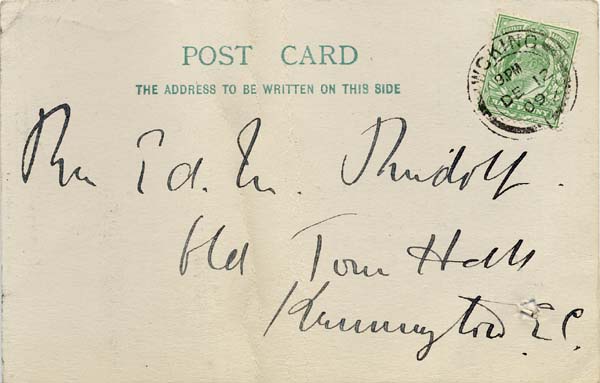 POST CARD
THE ADDRESS TO BE WRITTEN ON THIS SIDE
9 PM
DE 17
09
Rev E d. M. Rudolf.
Old Town Hall
Kennington S.E.